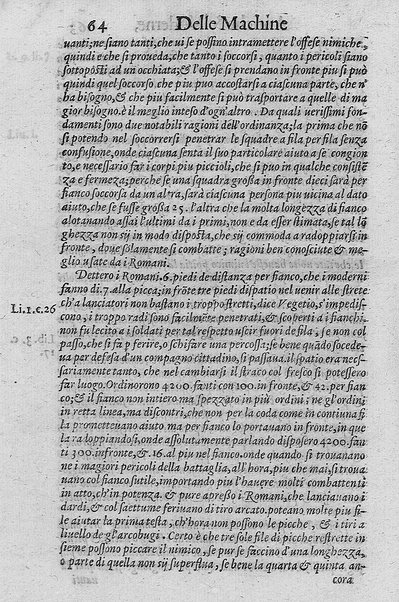 64 Delle Machine
uanti; ne siano tanti, che ui se possino intramettere l'offese nimiche,
quindi e che si proueda, che tanto i soccorsi, quanto i pericoli siano
sottoposti ad un occhiata; & l'offese si prendano in fronte piu si può
quindi quel soccorso che piu puo accostarsi a ciascuna parte, che n'
ha bisogno, & che piu facilmente si può trasportare a quelle di ma
gior bisogno. è il meglio inteso d'ogn'altro. Da quali uerissimi fon-
damenti sono due notabili ragioni dell'ordinanza; la prima che nō
si potendo nel soccorrersi penetrar le squadre a fila per fila senza
confusione, onde ciascuna senta il suo particolare aiuto a se congion
to, e necessario far i corpi piu piccioli, che si puo in qualche consistē
za e fermeza; perche se una squadra grossa in fronte dieci sarà per
fianco soccorsa da un'altra, sarà ciascuna persona piu uicina al dato
aiuto, che se fusse grossa 25. l'altra che la molta longhezza di fianco
alotanando assai l'ultimi da i primi, non e da esser stimata, se tal lō
ghezza non sij in modo disposta, che sij commoda a radoppiarsi in
fronte, doue solamente si combatte; ragioni ben conosciute & me-
glio usate da i Romani.
Dettero i Romani. 6. piedi de distanza per fianco, che i moderni
fanno di. 7 alla picca; in frōte tre piedi dispatio nel uenir alle strete
Li. 1. c. 26 ch'a lanciatori non bastano i troppo stretti, dice Vegetio, s'impedis-
cono, i troppo radi sono facilmēte penetrati, & scoperti a i fianchi.
non fu lecito a i soldati per tal respetto uscir fuori de fila, se non col
passo, che si fà p ferire, o schifare una percossa; se bene quādo socede-
ua per defesa d'un compagno cittadino, si passaua. il spatio era neces-
sariamente tanto, che nel cambiarsi il straco col fresco si potessero
far luogo. Ordinorono 4200. fanti con 100. in fronte, & 42. per fian
co; & il fianco non intiero ma spezzato in piu ordini; ne gl'ordini
in retta linea, ma discontri, che non per la coda come in continua fi
la prometteuano aiuto ma per fianco lo portauano in fronte, in que
la radoppiandosi, onde assolutamente parlando disposero 4200. fan
ti 300. in fronte, & 16. al piu nel fianco. onde quando si trouanano
ne i magiori pericoli della battaglia, all'hora, piu che mai, si troua
uano col fianco sutile, importando piu l'hauere molti combattenti
in atto, ch'in potenza. & pure apresso i Romani, che lanciauano i
dardi, & col saettume feriuano di tiro arcato. poteano molte piu fi-
le aiutar la prima testa, ch'hora non possono le picche, & i tiri a
liuello de gl'arcobugi. Certo è che tre sole file di picche restrette in
sieme possono piccare il nimico, se pur se faccino d'una longhezza,
o parte di quella non sij superflua, se bene la quarta & quinta an-
cora